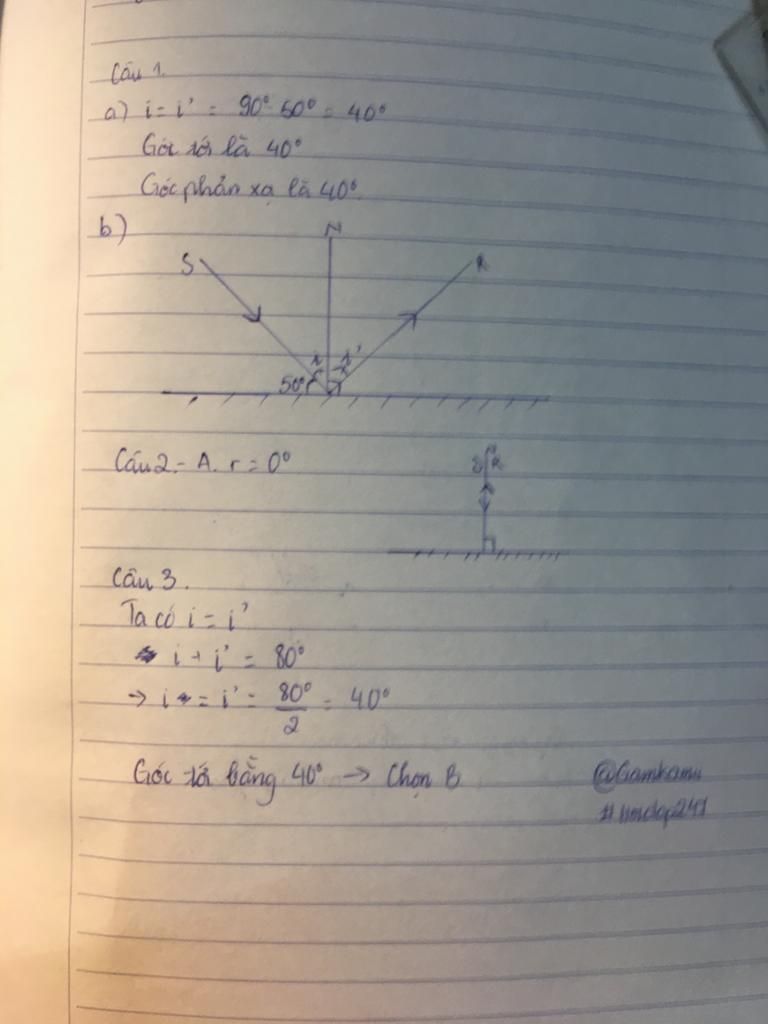 Câu 1.
a) i = i' = 90° - 50° = 40°
Góc tới là 40°
Góc phản xạ là 40°.
b)
N
S R
i i'
50°
Câu 2. - A. r = 0°
S R
Câu 3.
Ta có i = i'
i + i' = 80°
→ i = i' = 80°/2 = 40°
Góc tới bằng 40° → Chọn B